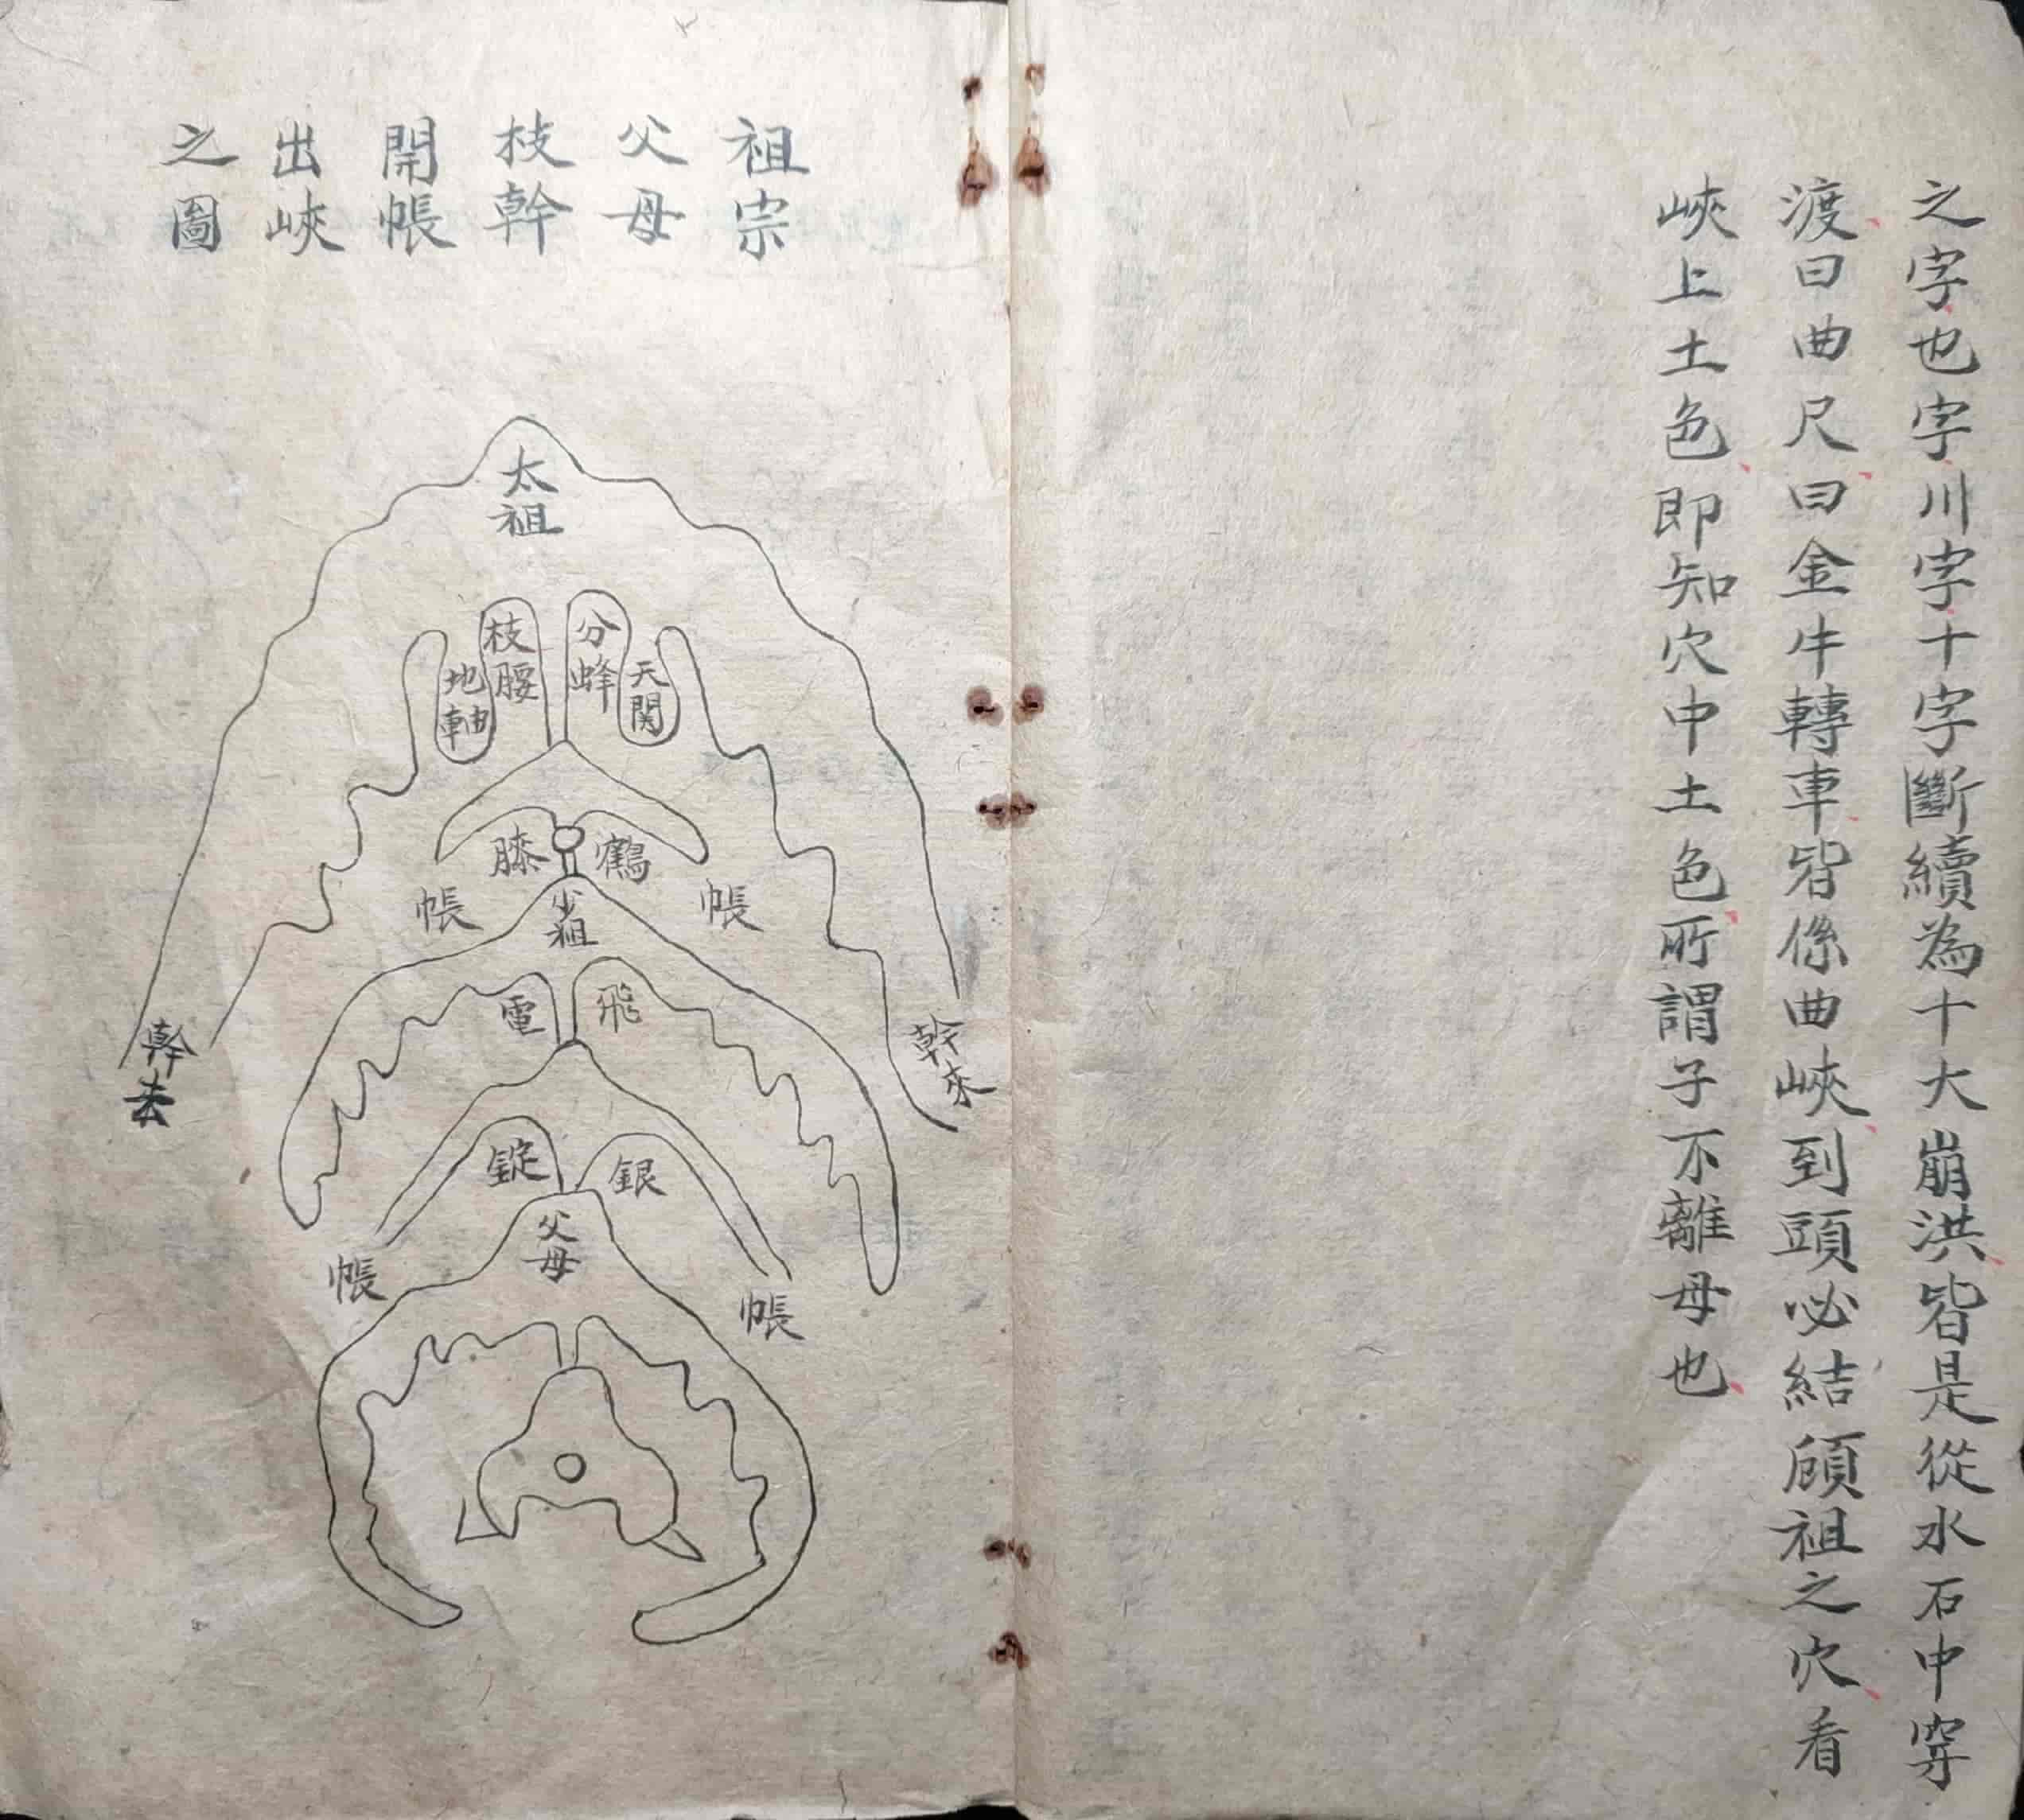 之字也字川字十字斷續為十大崩洪皆是從水石中穿
渡曰曲尺曰金牛轉車皆係曲峽到頭必結顧祖之穴看
峽上土色即知穴中土色所謂子不離母也
祖宗
父母
枝幹
開帳
出峽
之圖
太祖
分蜂
枝腰
天関
地軸
鶴膝
帳
帳
少祖
飛電
幹來
幹去
銀錠
父母
帳
帳